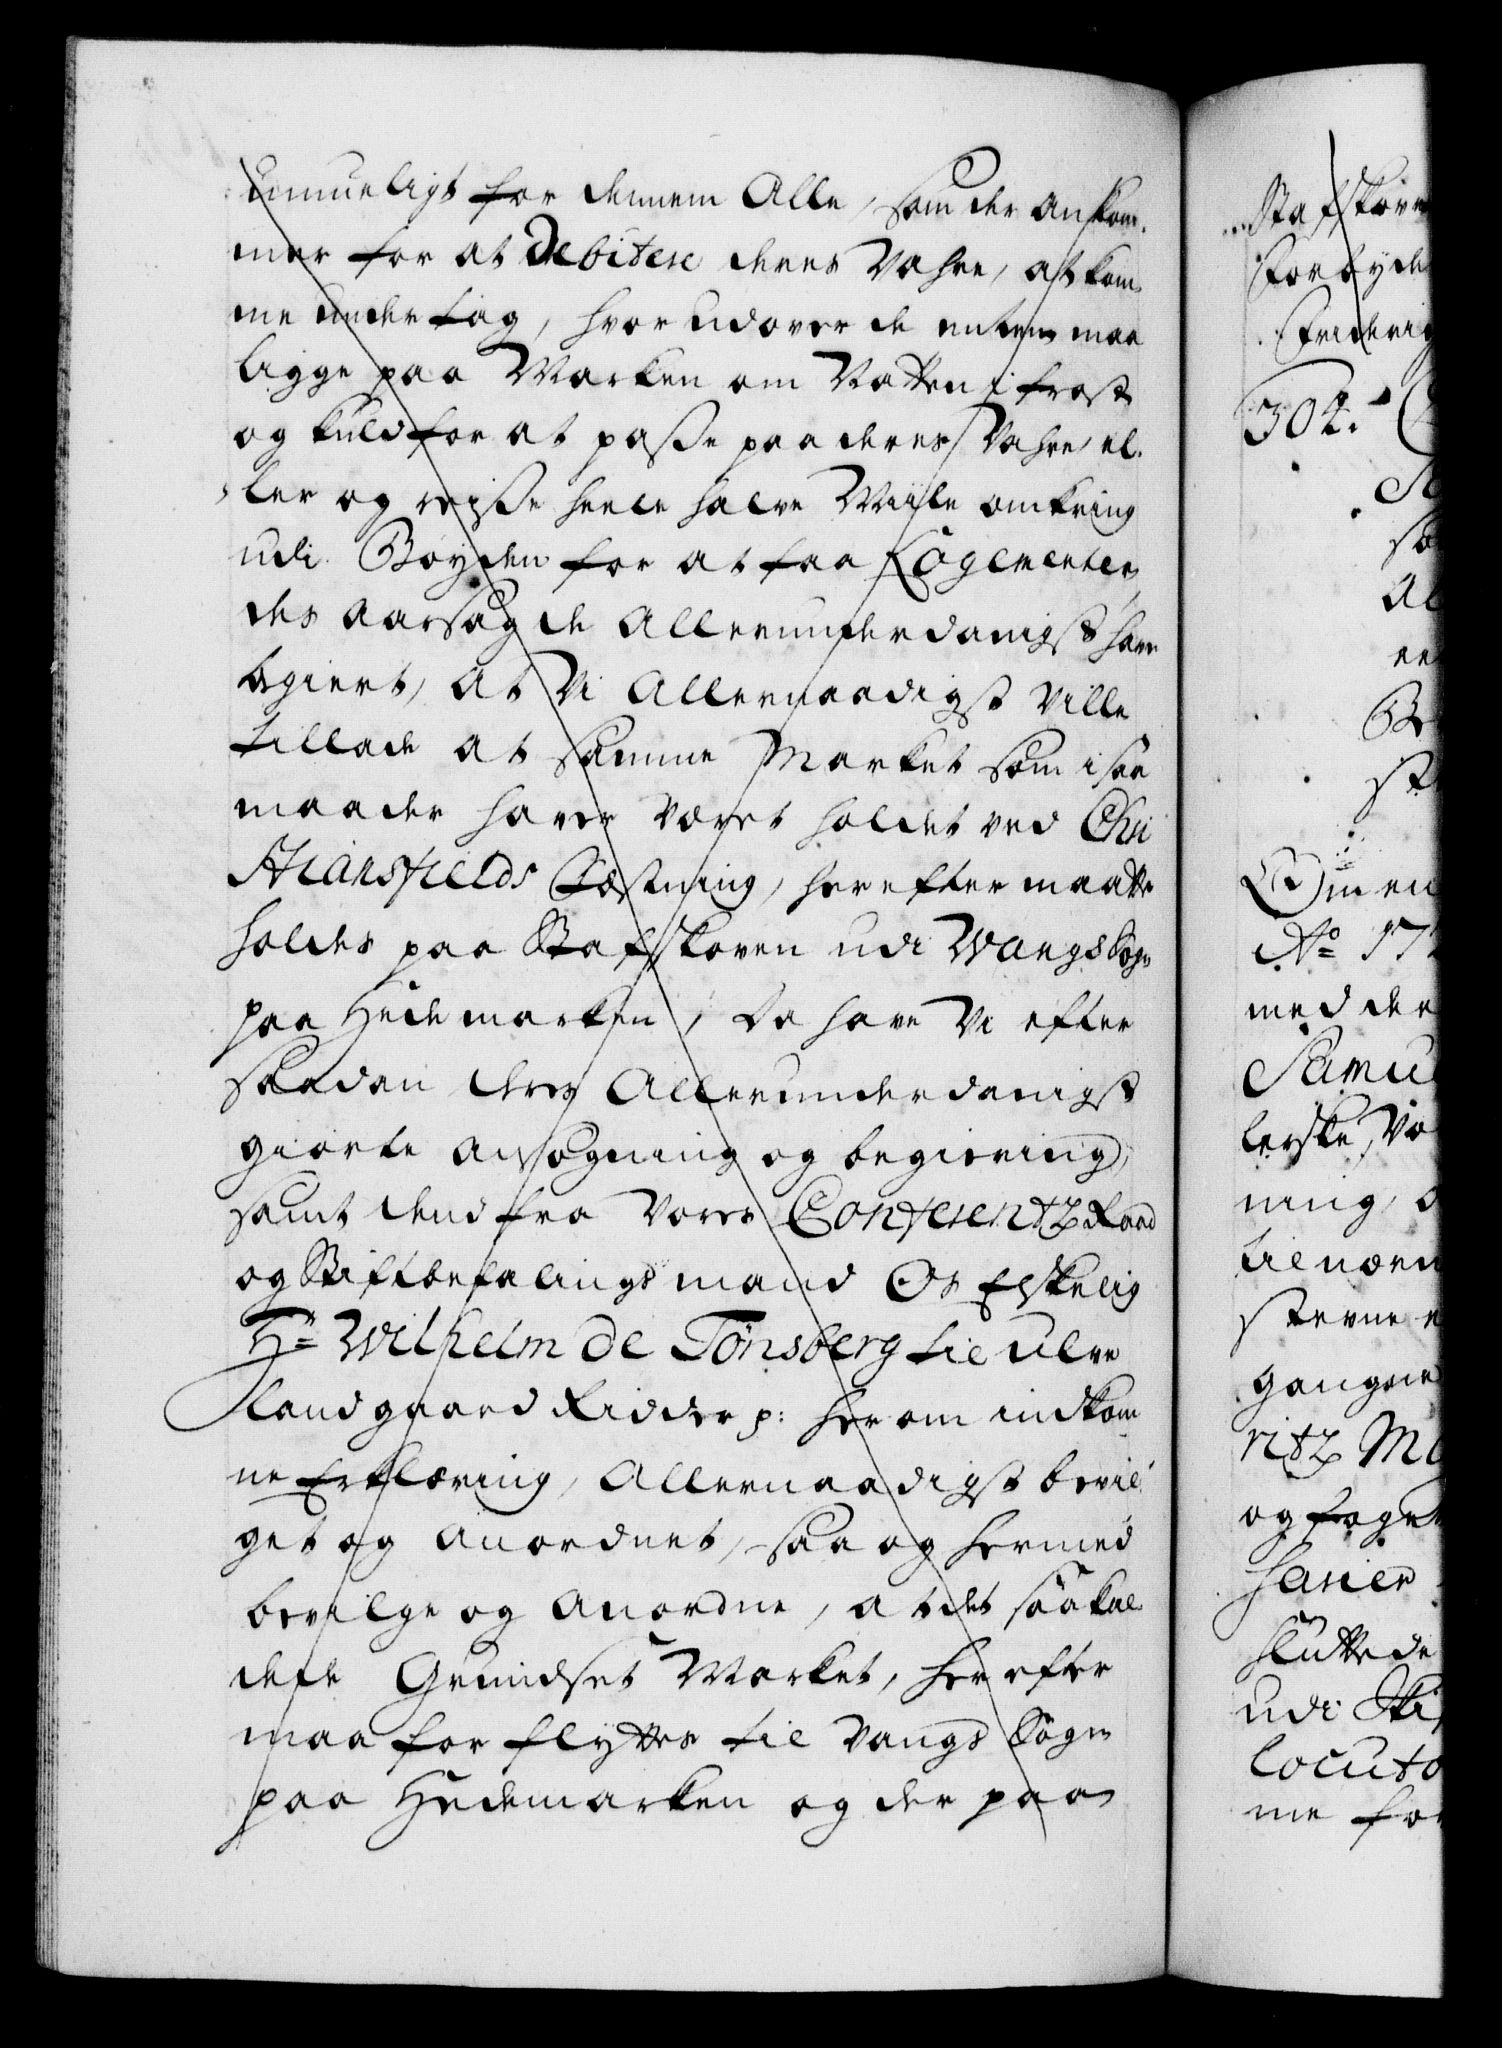 umueligt for dennem Alle, som der ankom-
mer for at Debitere deres Vahre, at kom-
me under tag, hvor udover de enten maa
ligge paa Marken om Natten i frost
og kuld for at passe paa deres Vahre, el-
ler og reisse heele halve Miile omkring
udi Bøyden for at faa Logementer,
des aarsag de Allerunderdanigst have
begiert, At Vi Allernaadigst Ville
tillade at samme Market som i saa
maader haver Været holdet ved Chri
stiansfields Fæstning, herefter maatte
holdes paa Stafskoven udi Wangs Sogn
paa Hedemarken, Da have Vi efter
saadan deres Allerunderdanigst
giorte ansøgning og begiering,
samt dend fra Vores Conferentz Raad
og Stiftbefalings mand Os Elskelig
Hr Wilhelm de Tønsberg til Ulve
landgaard Ridder p: her om indkom
ne Erklæring, Allernaadigst bevil-
get og anordnet, saa og hermed
bevilge og anordne, at det saakal-
dede Grundset Market, her efter
maa for flyttes til Vangs Sogn
paa Hedemarken og der paa
Stafskove
Forbyde
Friderig
304.
Om en
No 17
med der
Samu
lerske, Vo
ning, o
til nærv
stevne e
gangne
ritz M
og foget
harier
sluttede
udi Sti
locuto
me for